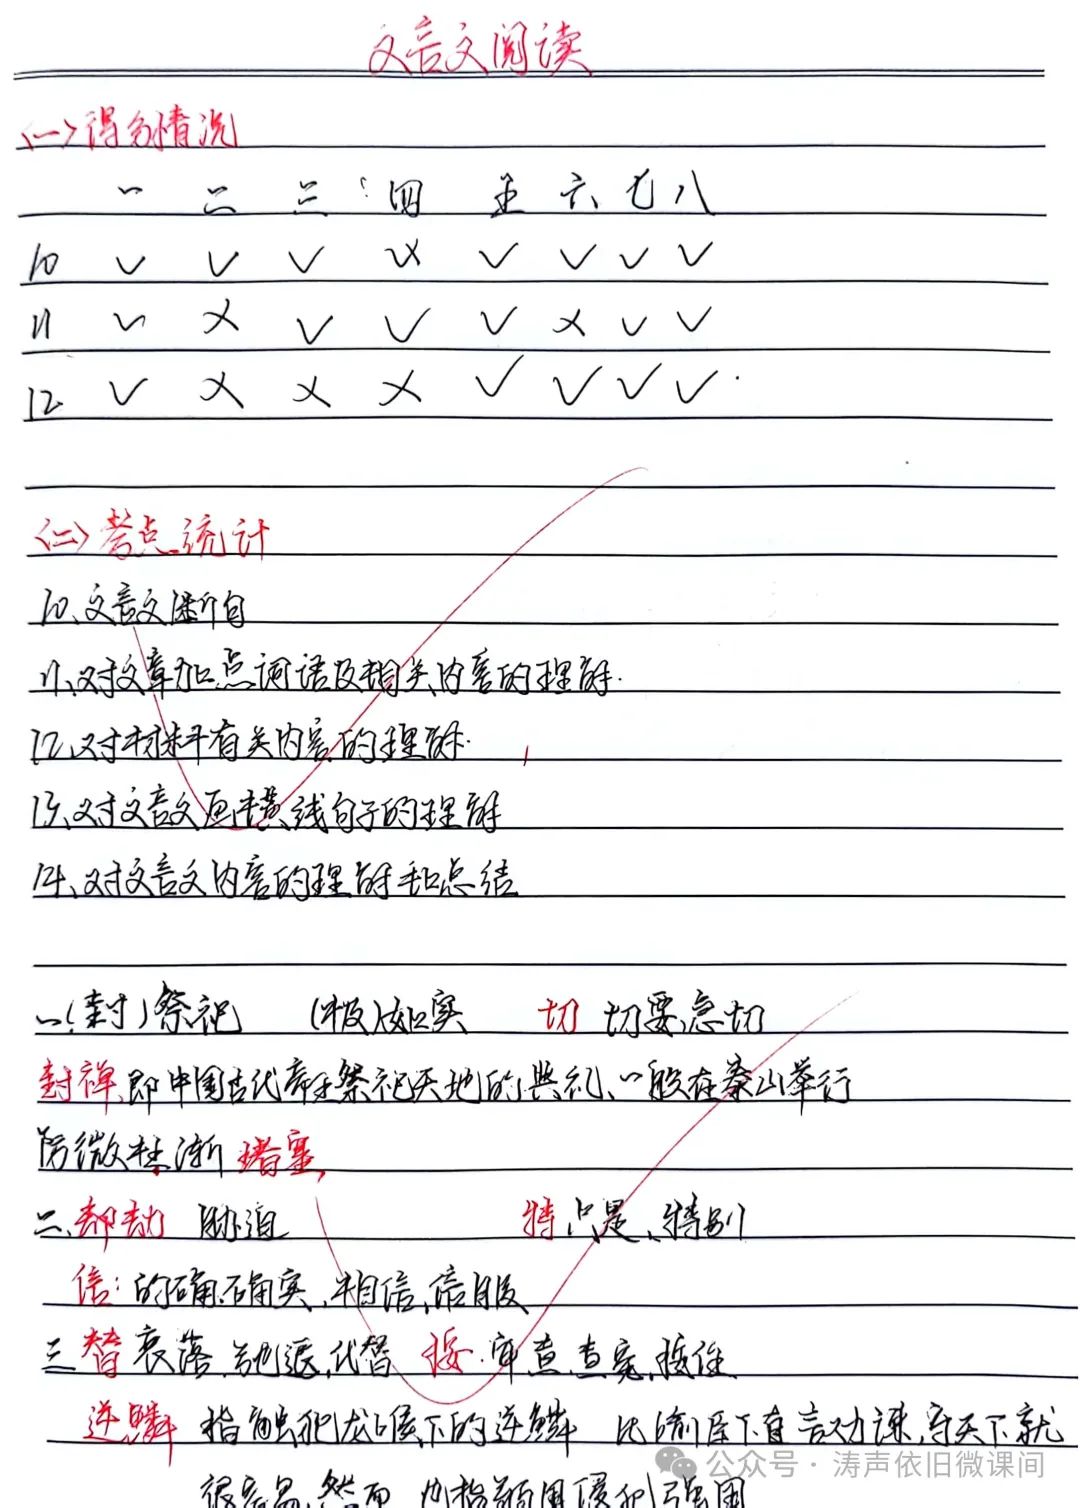 文言文阅读
<一>得分情况
一 二 三 四 五 六 七 八
10 ✓ ✓ ✓ ✓ ✓ ✓ ✓
11 ✓ × ✓ ✓ ✓ × ✓ ✓
12 ✓ × × × ✓ ✓ ✓ ✓
<二>考点统计
10、文言文断句
11、对文章加点词语及相关内容的理解.
12、对材料有关内容的理解.
13、对文言文画横线句子的理解
14、对文言文内容的理解和总结
一、(封)祭祀 (极)如实 切 切要、急切
封禅、即中国古代帝王祭祀天地的典礼、一般在泰山举行
防微杜渐 堵塞
二、却劫 胁迫 特 只是、特别
信: 的确、确实、相信、信服
三 替 衰落、弛退、代替 按. 审查、查究、按住
逆鳞 指触犯龙喉下的逆鳞 比喻臣下有言劝谏,
公众号·涛声依旧微课间
很容易,然而 也指弱国侵犯强国